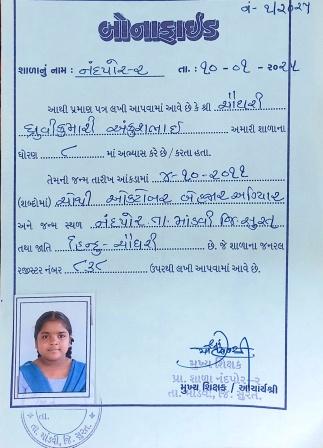 નં- ૧/૨૦૨૫
બોનાફાઈડ
શાળાનું નામ : નંદપોર-૨ તા. : ૧૦-૦૧-૨૦૨૫
આથી પ્રમાણ પત્ર લખી આપવામાં આવે છે કે શ્રી ચૌધરી
ધ્રુવીકુમારી અંકુશભાઈ અમારી શાળાના
ધોરણ ૮ માં અભ્યાસ કરે છે / કરતા હતા.
તેમની જન્મ તારીખ આંકડામાં ૪-૧૦-૨૦૧૧
(શબ્દોમાં) ઓક્ટોબર બે હજાર અગિયાર
અને જન્મ સ્થળ નંદપોર તા. માંડવી જિ. સુરત
તથા જાતિ હિન્દુ-ચૌધરી છે. જે શાળાના જનરલ
રજીસ્ટર નંબર ૮૩૮ ઉપરથી લખી આપવામાં આવે છે.
મુખ્ય શિક્ષક / આચાર્યશ્રી
મુખ્ય શિક્ષક
પ્રા. શાળા નંદપોર-૨
તા. માંડવી, જિ. સુરત.
તા. માંડવી, જિ. સુરત.